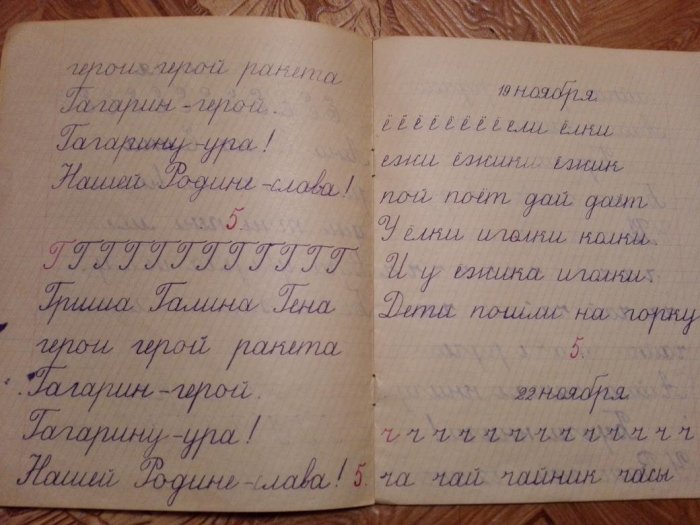 герои герой ракета
Гагарин-герой.
Гагарину-ура!
Нашей Родине-слава!
5
Г Г Г Г Г Г Г Г Г Г Г
Гриша Галина Гена
герои герой ракета
Гагарин-герой.
Гагарину-ура!
Нашей Родине-слава! 5.
19 ноября
ё ё ё ё ё ё ё ё ели ёлки
ежи ёжики ёжик
пой поёт дай даёт
У ёлки иголки колки.
И у ёжика иголки.
Дети пошли на горку
5.
22 ноября
ч ч ч ч ч ч ч ч ч ч ч ч ч
ча чай чайник часы